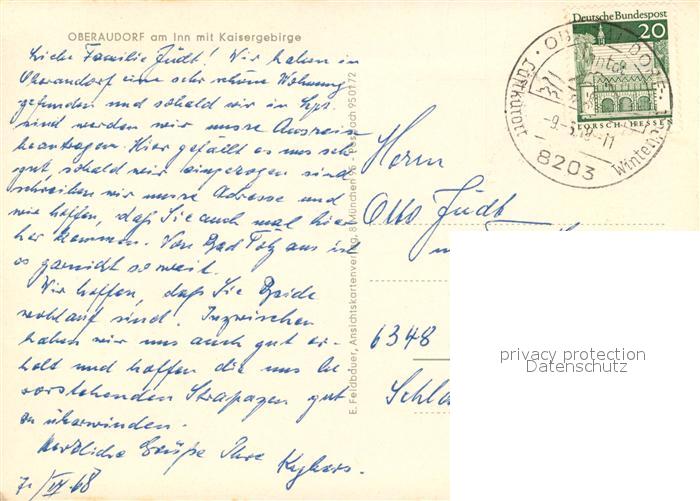 OBERAUDORF am Inn mit Kaisergebirge
Liebe Familie Jüdt! Wir haben in
Oberaudorf eine sehr schöne Wohnung
gefunden und sobald wir in
sind werden wir unsre Ausreise
beantragen. Hier gefällt es uns sehr
gut, sobald wir eingezogen sind
schreiben wir unsre Adresse und
wir hoffen, daß Sie auch mal hier
her kommen. Von Bad Tölz aus ist
es garnicht so weit.
Wir hoffen, daß Sie Beide
wohlauf sind. Inzwischen
haben wir uns auch gut er-
holt und hoffen die uns be-
vorstehenden Strapazen gut
zu überwinden.
Herzliche Grüße Ihre
7. /VI 68
E. Feldbauer, Ansichtskartenverlag, 8 München 95 - Postfach 950172
Deutsche Bundespost
20
LORSCH/HESSEN
Luftkurort
Winter
8203
Herrn
Otto Jüdt
6348
privacy protection
Datenschutz